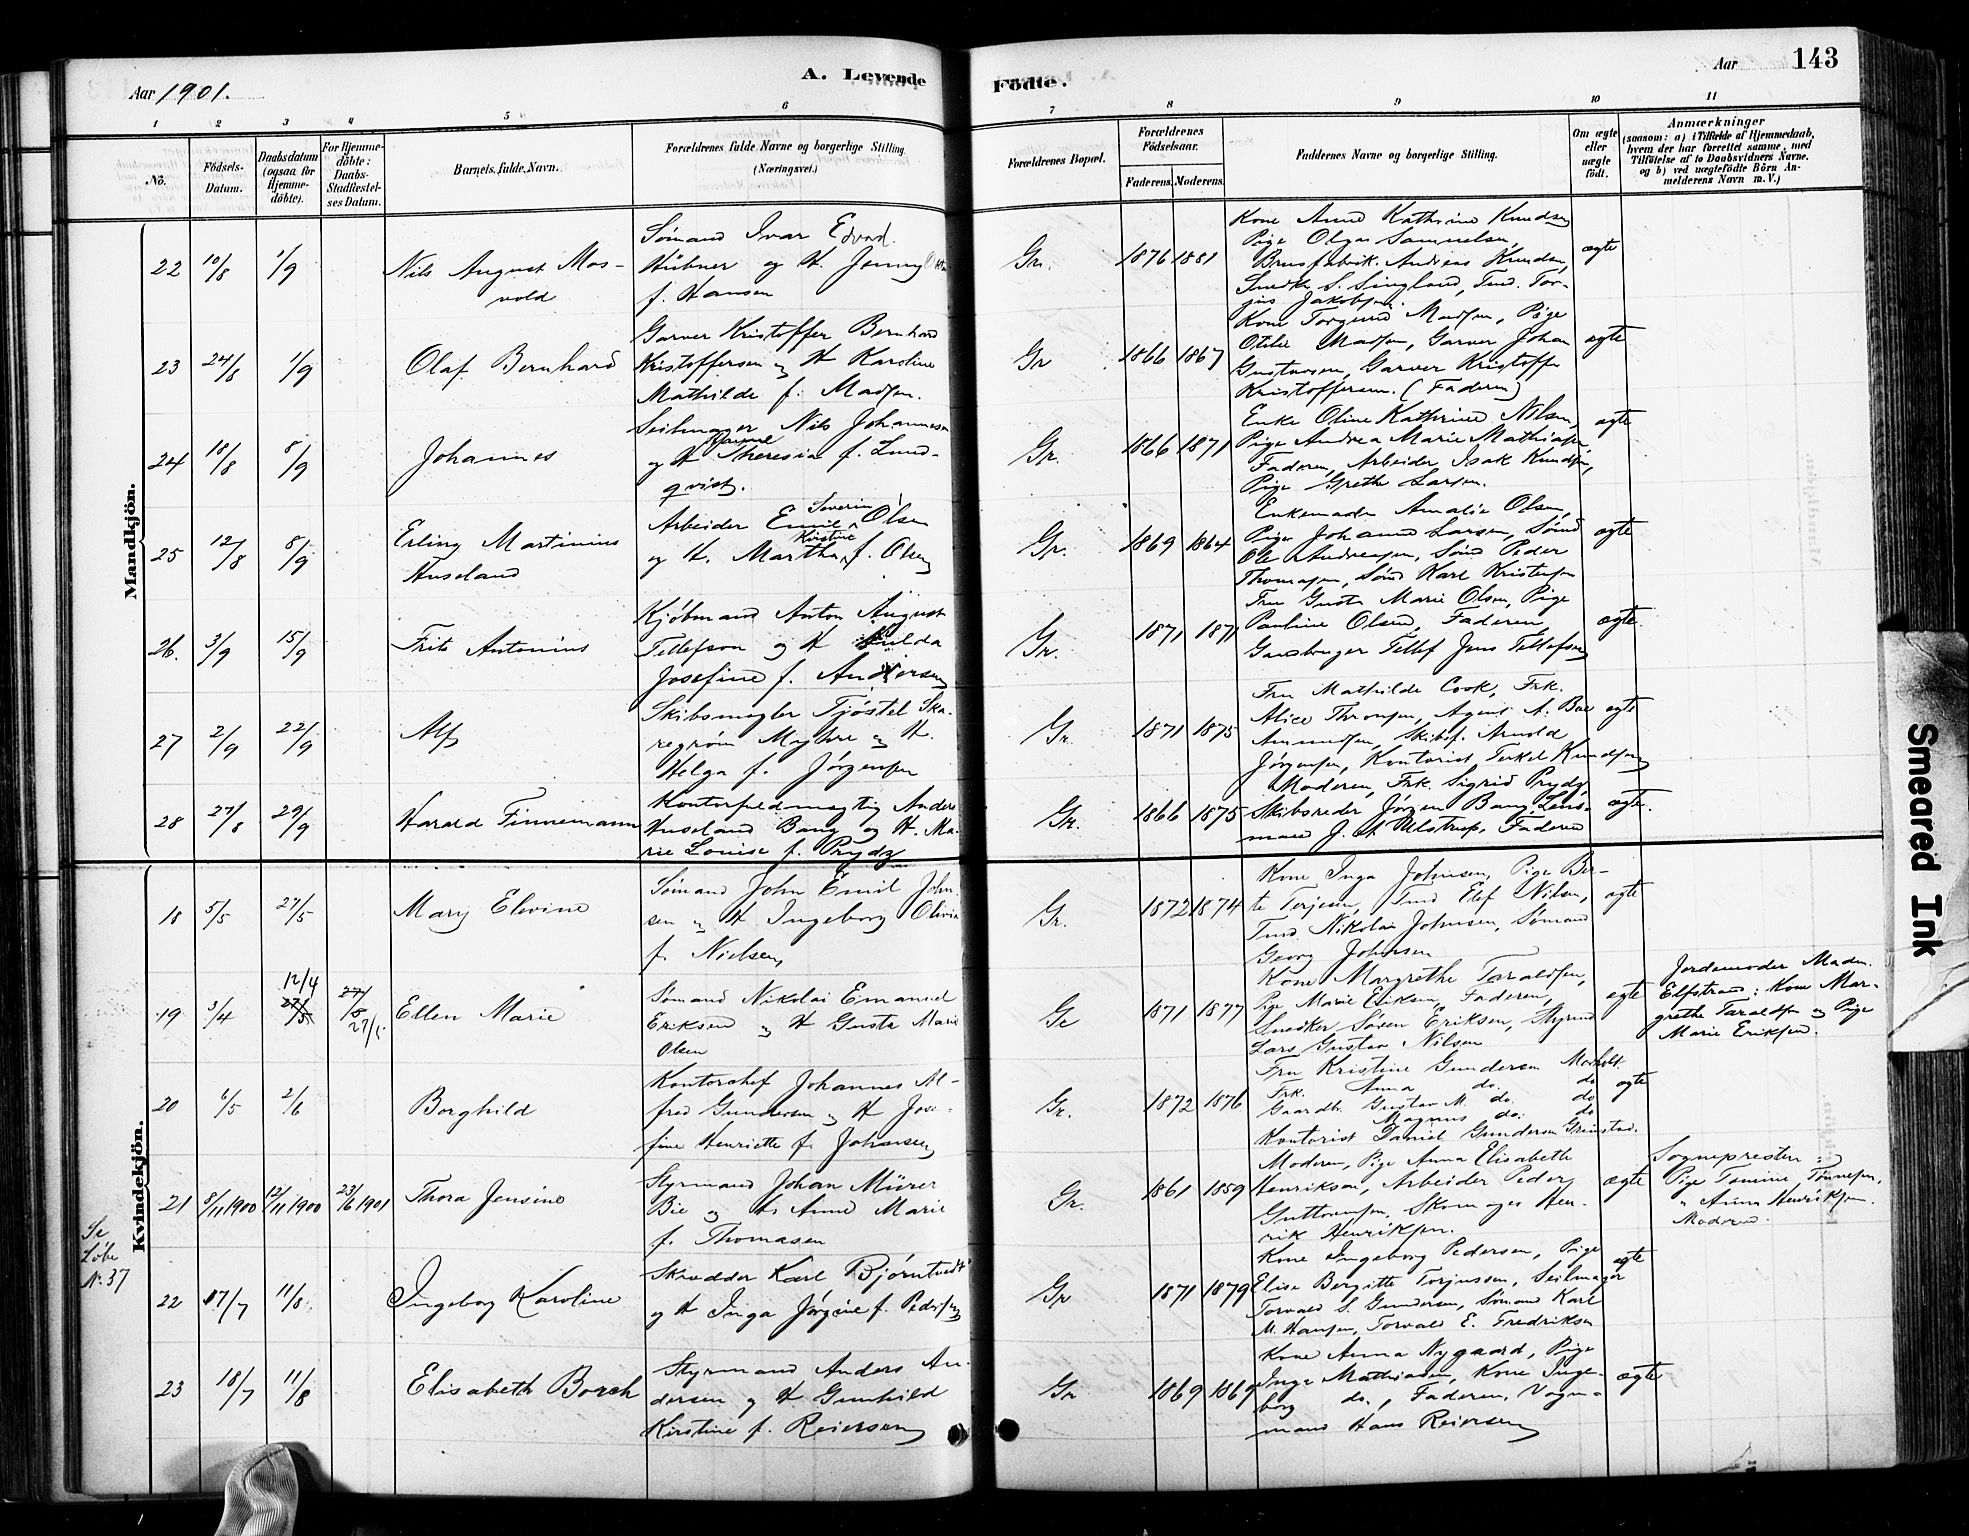 Aar 1901.
A. Levende
Födte.
Aar
143
1 2 3 4 5 6 7 8 9 10 11
No.
Födsels-
Datum.
Daabsdatum
(ogsaa for
Hjemme-
döbte).
For Hjemme-
döbte:
Daabs-
Stadfæstel-
ses Datum.
Barnets fulde Navn.
Forældrenes fulde Navne og borgerlige Stilling.
(Næringsvei.)
Forældrenes Bopæl.
Forældrenes
Födselsaar.
Faderens. Moderens.
Faddernes Navne og borgerlige Stilling.
Om ægte
eller
uægte
født.
Anmærkninger
(saasom: a) i Tilfælde af Hjemmedaab,
hvem der har forrettet samme, med
Tilföielse af to Daabsvidners Navne.
og b) ved uægtefödte Börn An-
melderens Navn m. V.)
Mandkjön.
22 10/8 1/9
Nils August Mos-
vold
Sømand Ivar Edvard
Hübner og H. Jenny
f. Hansen
Gr. 1876 1881
Kone Anne Kathrine Knudsen
Pige Olga Samuelsen,
Brusfabrik. Andreas Knudsen,
Snedk. S. Singland, Tmd. Tor-
jus Jakobsen.
ægte
23 24/8 1/9
Olaf Bernhard
Garver Kristoffer Bernhard
Kristoffersen og H Karoline
Mathilde f. Madsen.
Gr 1866 1867
Kone Torgund Madsen, Pige
Otilie Madsen, Garver Johan
Gustavsen, Garver Kristoffer
Kristoffersen. (Faderen)
ægte
24 18/8 8/9
Johannes
Seilmager Nils Johannesen
og H Theresia f. Lund-
qvist.
Gr. 1866 1871
Enke Oline Kathrine Nilsen,
Pige Andrea Marie Mathiasen,
Faderen, Arbeider Isak Knudsen,
Pige Grethe Larsen.
ægte
25 12/8 8/9
Erling Martinius
Huseland
Arbeider Emil Severin Olsen
og H. Martha Kirstine f. Olsen
Gr. 1869 1864
Enkemadm Amalie Olsen,
Pige Johanne Larsen, Sømd
Ole Andreasen, Sømd Peder
Thomasen, Sømd Karl Kristensen
ægte
26. 3/9 15/9
Frits Antonius
Kjøbmand Anton August
Tellefsen og H Hulda
Josefine f. Andersen
Gr. 1871 1871
Fru Gusta Marie Olsen, Pige
Pauline Olsen, Faderen,
Gaardbruger Tellef Jens Tellefsen
ægte.
27 2/9 22/9
Alf
Skibsmægler Tjøstel Ska-
regrøm Myhre og H.
Helga f. Jørgensen
Gr. 1871 1875
Fru Mathilde Cook, Frk.
Alice Thronsen, Agent A. Boe
Amundsen, Skibsf. Arnold
Jørgensen, Kontorist Terkel Knudsen
ægte
28 27/8 29/9
Harald Finnemann
Kontorfuldmægtig Anders
Huseland Bang og H. Ma-
rie Louise f. Prydz
Gr. 1866 1875
Moderen, Frk. Sigrid Prydz,
Skibsreder Jørgen Bang Lens-
mand J. A. Ulstrup, Faderen
ægte.
Kvindekjön.
18 5/5 27/5
Mary Elevine
Sømand John Emil John-
sen og H Ingeborg Olivia
f. Nielsen,
Gr. 1872 1874
Kone Inga Johnsen, Pige Ber-
te Terjesen, Tmd Elef Nilsen,
Tmd. Nikolai Johnsen, Sømand
Georg Johnsen
ægte
19 3/4 12/4 27/5 27/8 27/5
Ellen Marie
Sømand Nikolai Emanuel
Eriksen og H Gusta Marie
Olsen
Gr 1871 1877
Kone Margrethe Taraldsen,
Pige Marie Eriksen, Faderen,
Snedker Søren Eriksen, Styrmd
Lars Gustav Nilsen
ægte
Jordemoder Madm.
Elfstrand: Kone Mar-
grethe Taraldsen og Pige
Marie Eriksen.
20 6/5 2/6
Borghild
Kontorchef Johannes Al-
fred Gundersen og H Jose-
fine Henriette f. Johansen
Gr. 1872 1876
Fru Kristine Gundersen Morholt
Frk. Anna do. do
Gaardb. Gustav M. do. do
Magnus do. do
Kontorist Daniel Gundersen Grimstad.
ægte
Se
Løbe
N. 37
21 8/11 1900 12/11 1900 23/6 1901
Thora Jensine
Styrmand Johan Mürer
Bie og H. Anne Marie
f. Thomasen
Gr. 1861 1859
Moderen, Pige Anna Elisabeth
Henriksen, Arbeider Peder
Guttormsen, Skomager Hen-
rik Henriksen.
ægte
Sognepresten:
Pige Tomine Tønnesen,
" Anna Henriksen.
Moderen.
22 17/7 11/8
Ingeborg Karoline
Skrædder Karl Bjørntvedt
og H Inga Jørgine f. Pedersen
Gr 1871 1879
Kone Ingeborg Pedersen, Pige
Elise Bergitte Torjussen, Seilmager
Torvald S. Gundersen, Sømand Karl
M. Hansen, Torvald E. Fredriksen
ægte
23 18/7 11/8
Elisabeth Borch
Styrmand Anders An-
dersen og H Gunhild
Kirstine f. Reiersen
Gr 1869 1869
Kone Anna Nygaard, Pige
Inga Mathiasen, Kone Inge-
borg do., Faderen, Vogn-
mand Hans Reiersen
ægte
Smeared Ink